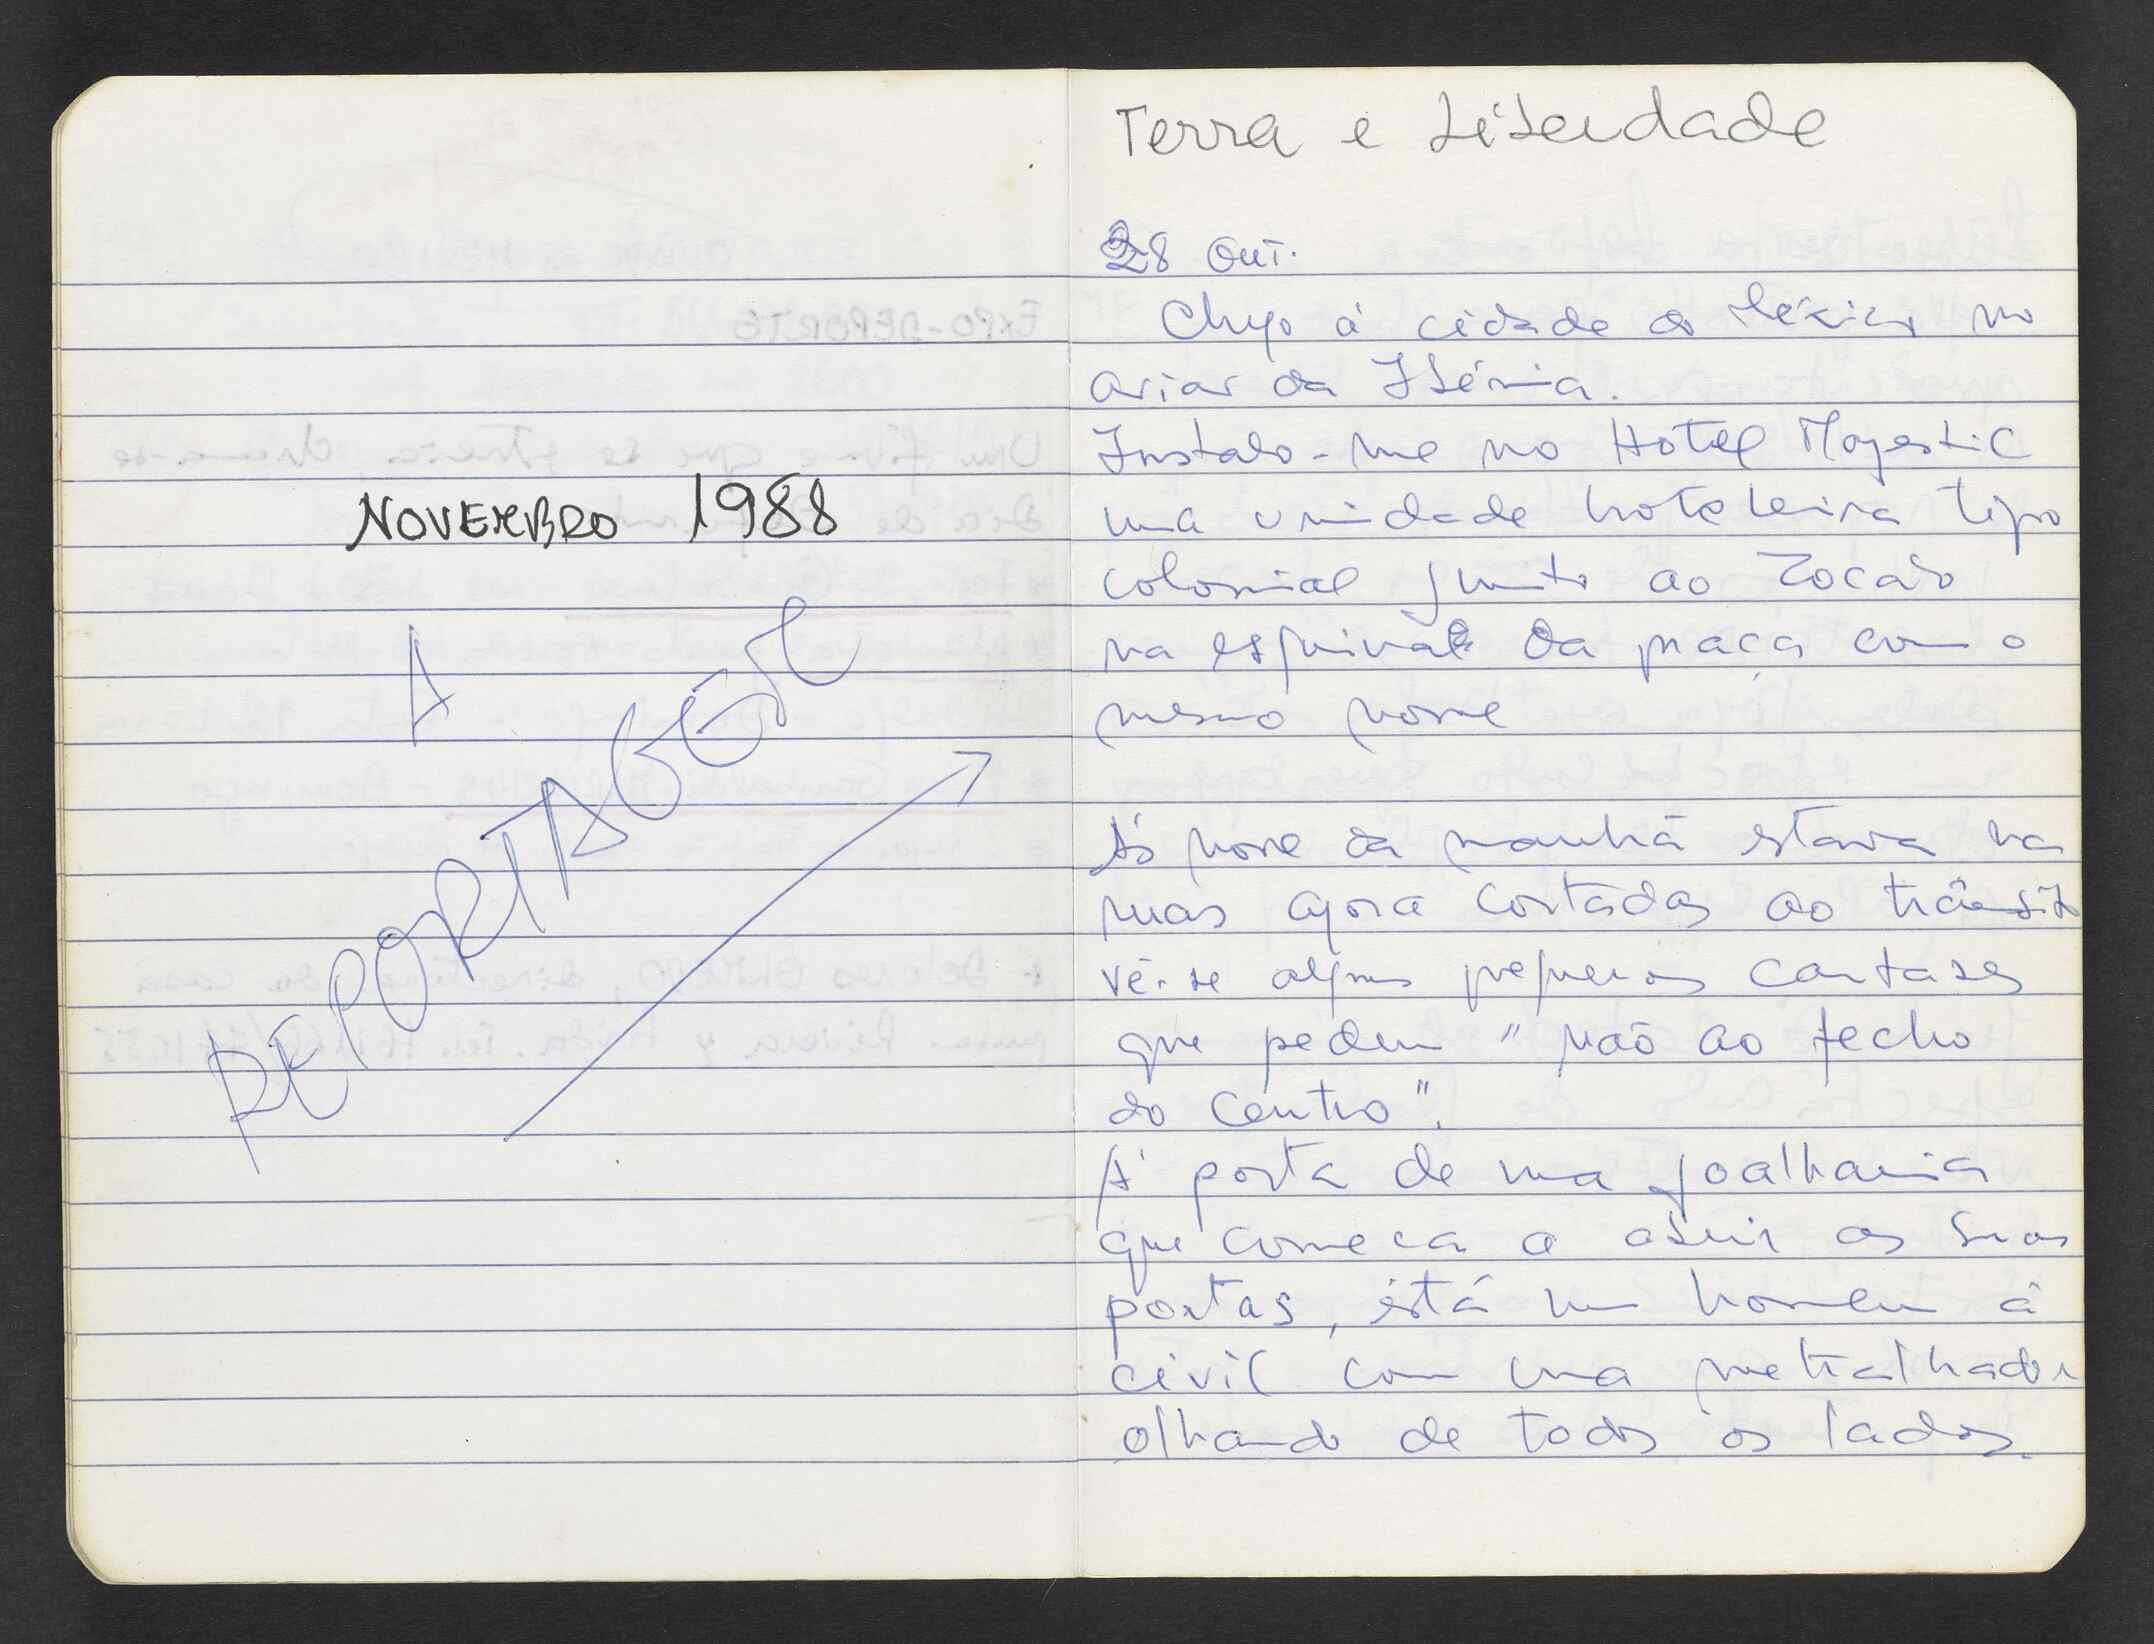 NOVEMBRO 1988
A
REPORTAGEM
Terra e Liberdade
28 Out.
Chego à cidade do México no
aviar da Ibéria.
Instalo-me no Hotel Majestic
uma unidade hoteleira tipo
colonial junto ao Zocalo
na esquina da praça com o
mesmo nome
Às nove da manhã estava na
ruas agora cortadas ao trânsito
vê-se alguns pequenos cartazes
que pedem "não ao fecho
do centro".
À porta de uma joalharia
que começa a abrir as suas
portas, está um homem à
civil com uma metralhadora
olhando de todos os lados.